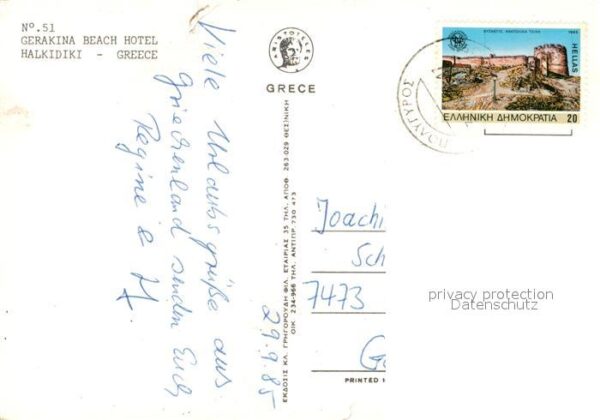 Nº.51
GERAKINA BEACH HOTEL
HALKIDIKI - GREECE
Viele Urlaubsgrüße aus
Griechenland senden Euch
Regine & H.
29.9.85
ARISTOTELES
GRECE
ΕΚΔΟΣΙΣ ΚΛ. ΓΡΗΓΟΡΟΥΔΗ ΦΙΛ. ΕΤΑΙΡΙΑΣ 35 ΤΗΛ. ΑΠΟΘ. 263-029 ΘΕΣ/ΝΙΚΗ
ΟΙΚ. 234-966 ΤΗΛ. ΑΝΤΙΠΡ. 730 473
1985
HELLAS
ΕΛΛΗΝΙΚΗ ΔΗΜΟΚΡΑΤΙΑ 20
ΠΟΛΥΓΥΡΟΣ
Joachi
Sch
7473
privacy protection
Datenschutz
G
PRINTED I